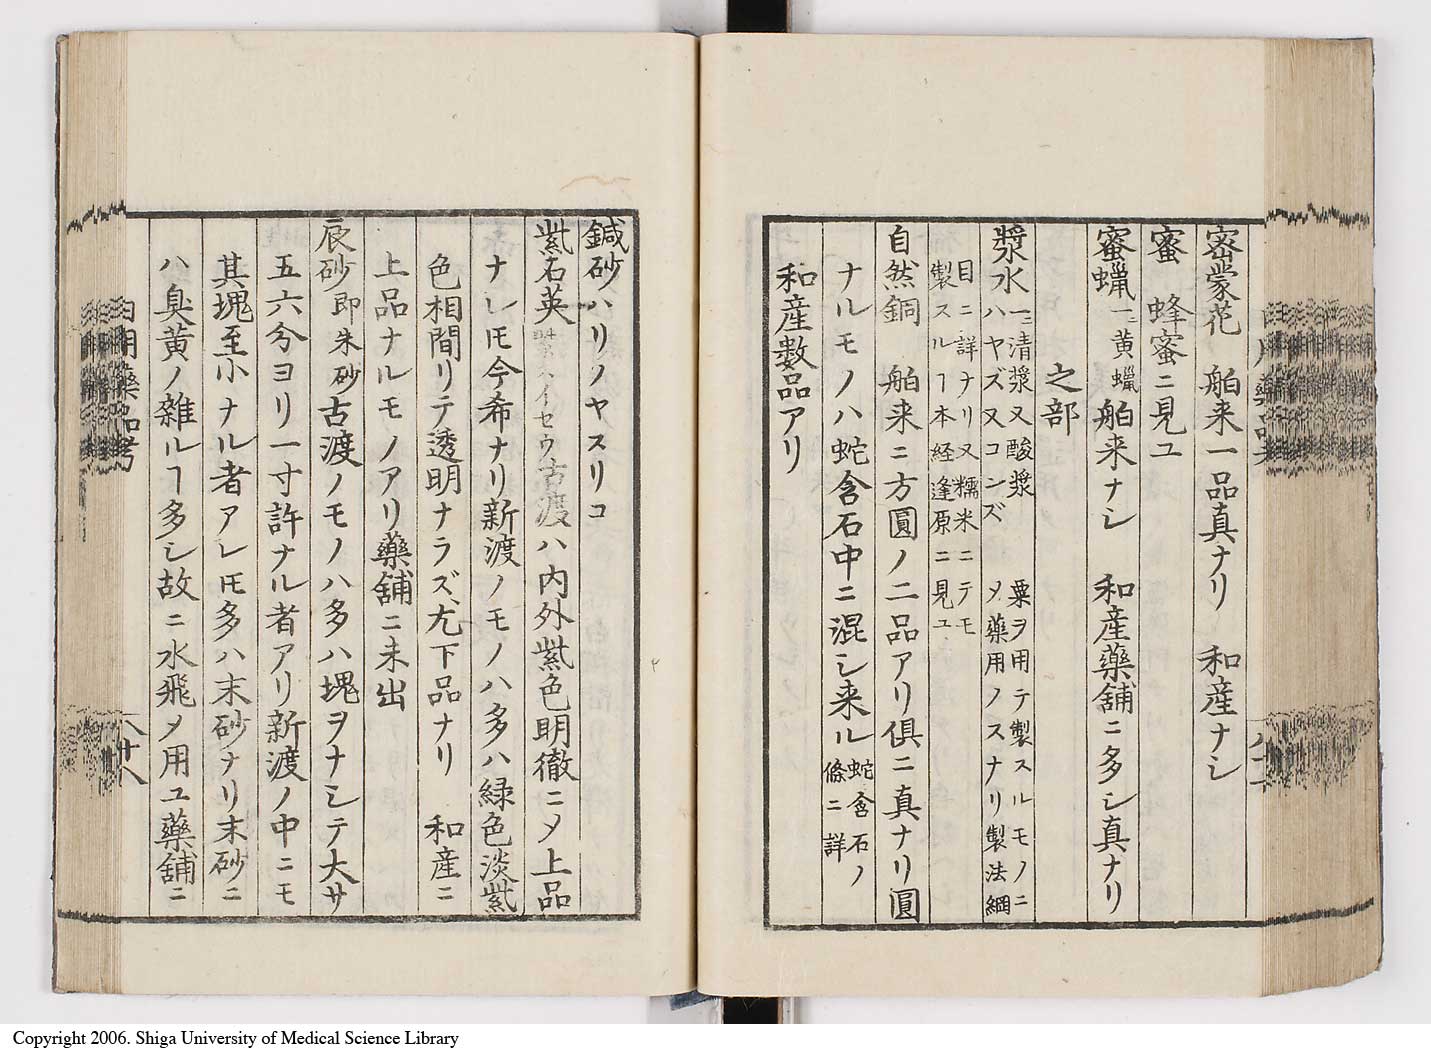 密蒙花　舶来一品真ナリ　和産ナシ
蜜　蜂蜜ニ見ユ
蜜蠟 一ニ黄蠟 舶来ナシ　和産藥舗ニ多シ真ナリ
之部
漿水 一ニ清漿又酸漿 粟ヲ用テ製スルモノニ
ハヤズ又コンズ メ藥用ノスナリ製法綱
目ニ詳ナリ又糯米ニテモ
製スルヿ本経逢原ニ見ユ
自然銅　舶来ニ方圓ノ二品アリ俱ニ真ナリ圓
ナルモノハ蛇含石中ニ混シ来ル 蛇含石ノ
條ニ詳
和産数品アリ
鍼砂ハリノヤスリコ
紫石英 古渡ハ内外紫色明徹ニメ上品
ナレ𪜈今希ナリ新渡ノモノハ多ハ緑色淡紫
色相間リテ透明ナラズ尤下品ナリ　和産ニ
上品ナルモノアリ藥舗ニ未出
辰砂 即朱砂 古渡ノモノハ多ハ塊ヲナシテ大サ
五六分ヨリ一寸許ナル者アリ新渡ノ中ニモ
其塊至小ナル者アレ𪜈多ハ末砂ナリ末砂ニ
ハ臭黄ノ雑ルヿ多シ故ニ水飛メ用ユ藥舗ニ
藥品考
八十八
Copyright 2006. Shiga University of Medical Science Library